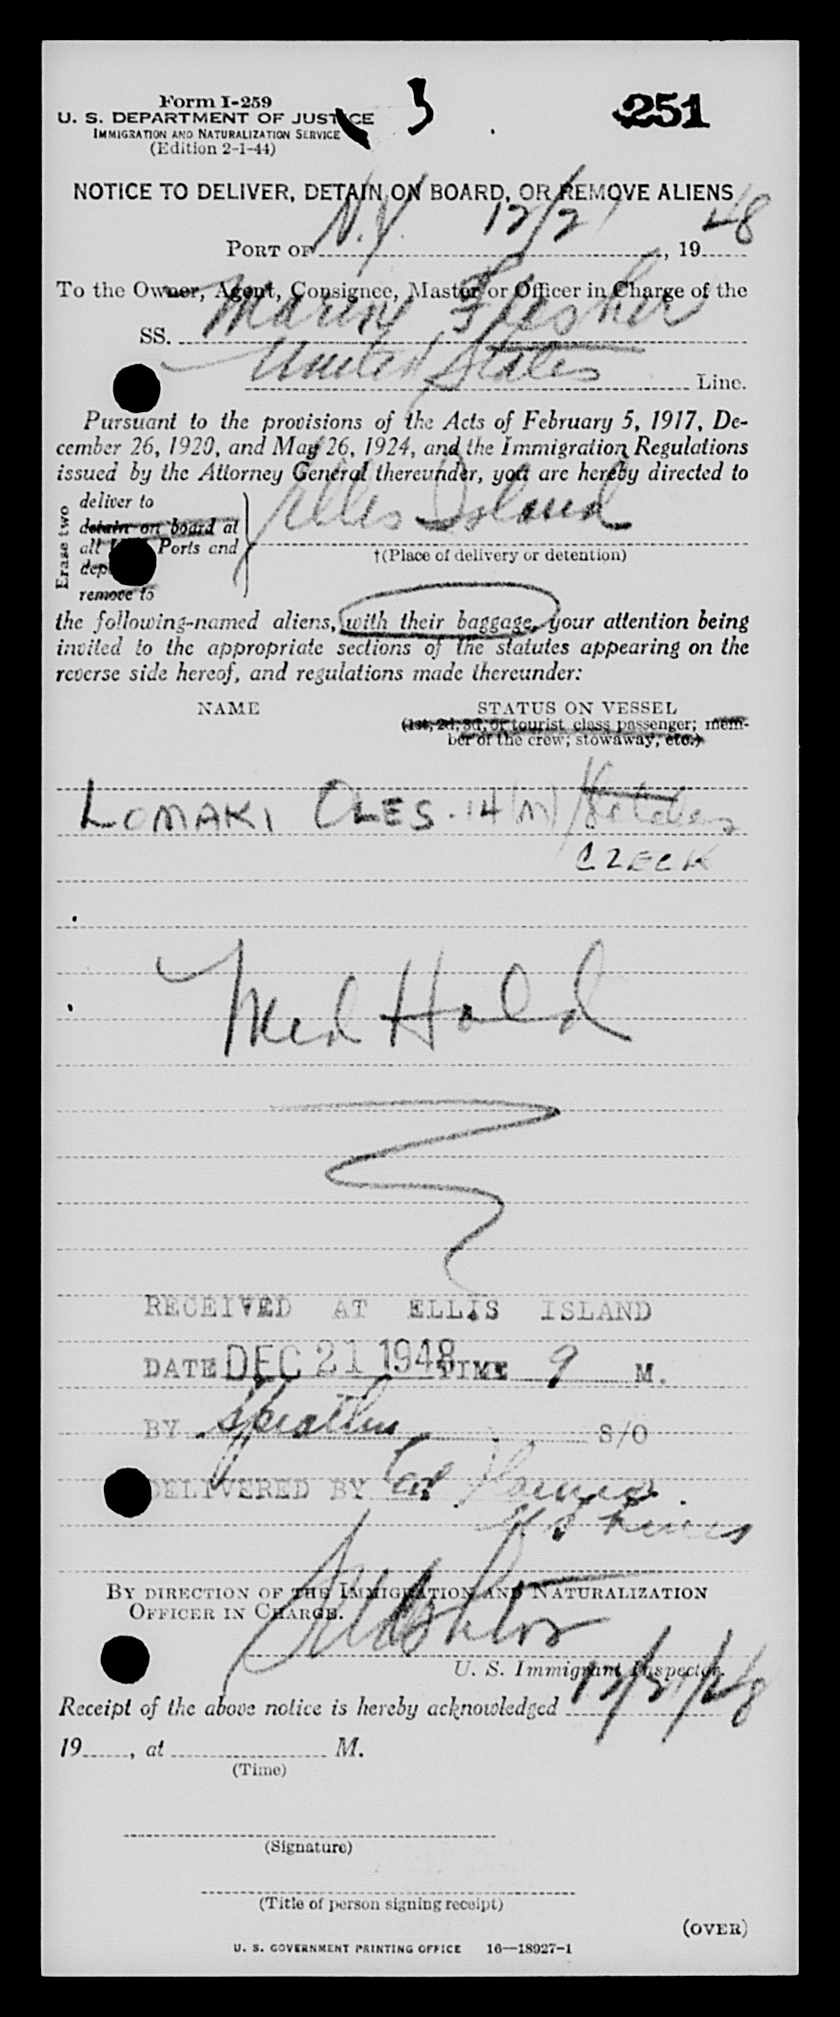 Form I-259
U. S. DEPARTMENT OF JUSTICE
IMMIGRATION AND NATURALIZATION SERVICE
(Edition 2-1-44)
3
251
NOTICE TO DELIVER, DETAIN ON BOARD, OR REMOVE ALIENS
PORT OF N.Y. 12/21, 1948
To the Owner, Agent, Consignee, Master or Officer in Charge of the
SS. Marine Flasher
United States Line.
Pursuant to the provisions of the Acts of February 5, 1917, De-
cember 26, 1920, and May 26, 1924, and the Immigration Regulations
issued by the Attorney General thereunder, you are hereby directed to
Erase two
deliver to
detain on board at
all Ports and
remove to
Ellis Island
†(Place of delivery or detention)
the following-named aliens, with their baggage, your attention being
invited to the appropriate sections of the statutes appearing on the
reverse side hereof, and regulations made thereunder:
NAME STATUS ON VESSEL
(1st, 2d, 3d, or tourist class passenger; mem-
ber of the crew; stowaway; etc.)
LOMAKI OLES. 14 (M)
CZECK
Med Hold
RECEIVED AT ELLIS ISLAND
DATE DEC 21 1948 TIME 9 M.
BY S/O
DELIVERED BY
BY DIRECTION OF THE IMMIGRATION AND NATURALIZATION
OFFICER IN CHARGE.
U. S. Immigrant Inspector.
Receipt of the above notice is hereby acknowledged 12/21/48
19, at M.
(Time)
(Signature)
(Title of person signing receipt)
(OVER)
U. S. GOVERNMENT PRINTING OFFICE 16—18927-1